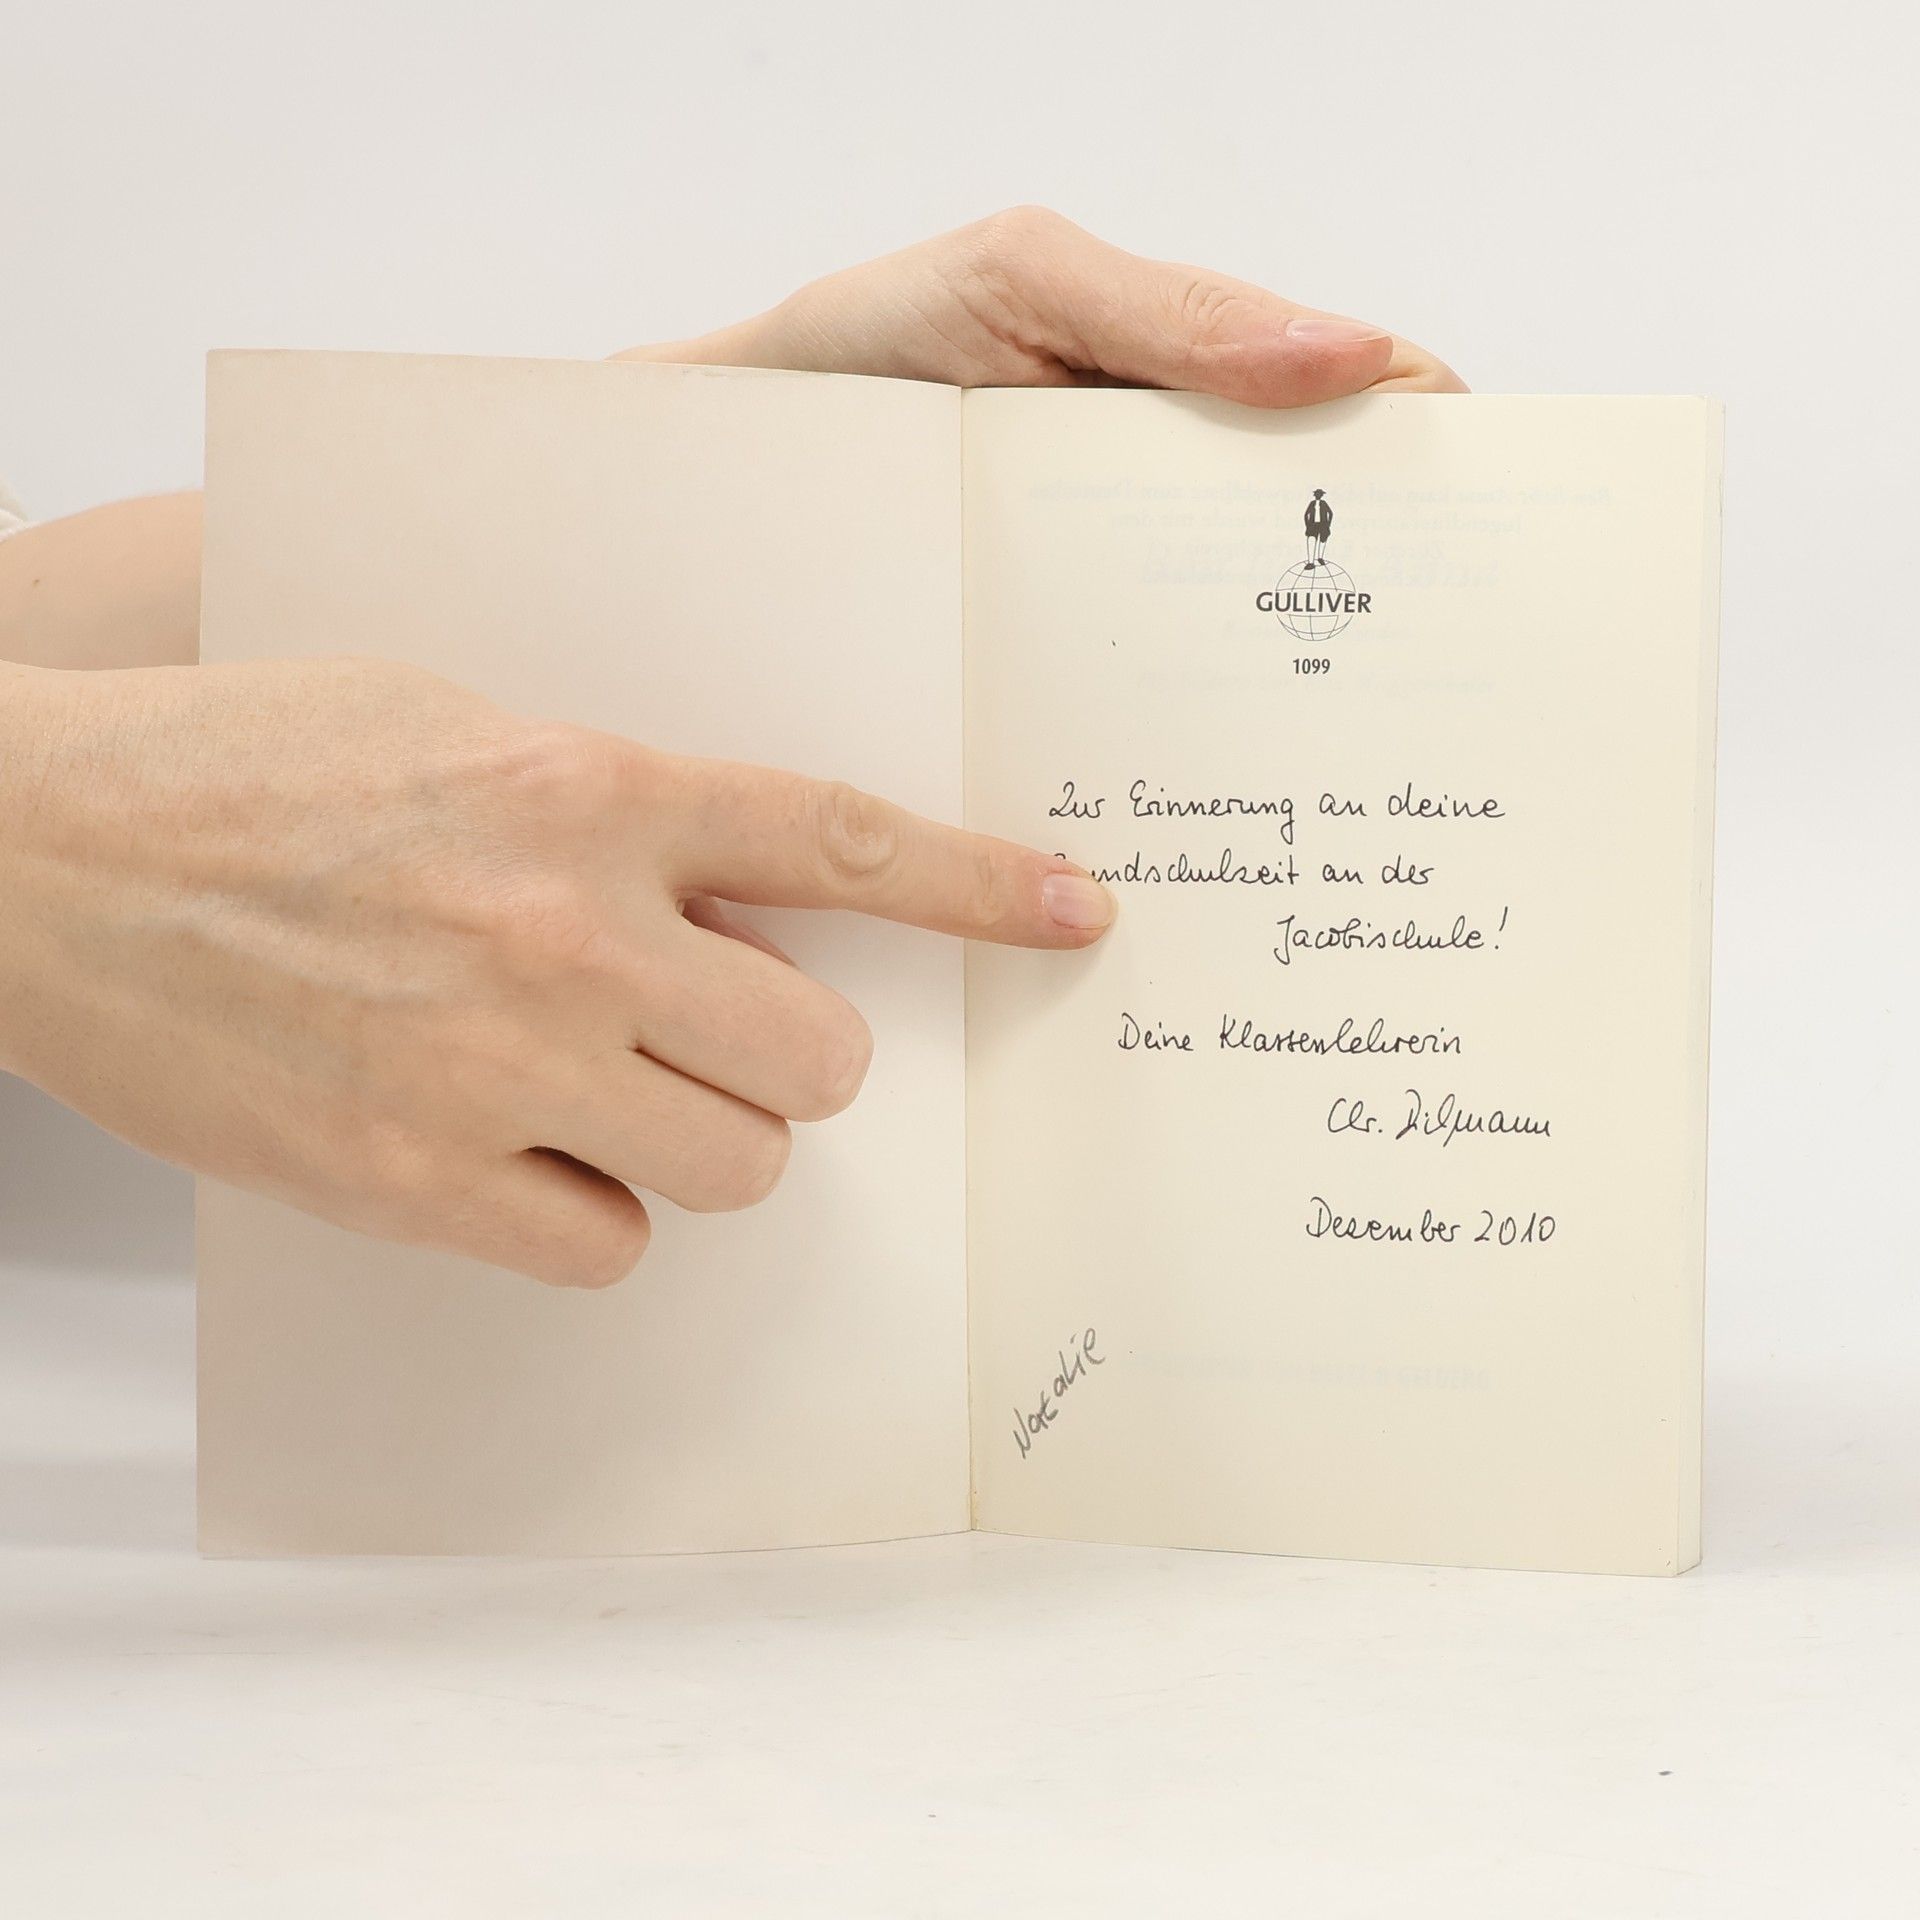 GULLIVER
1099
Zur Erinnerung an deine
undschulzeit an der
Jacobischule!
Deine Klassenlehrerin
Chr. Dilmann
Dezember 2010
Natalie